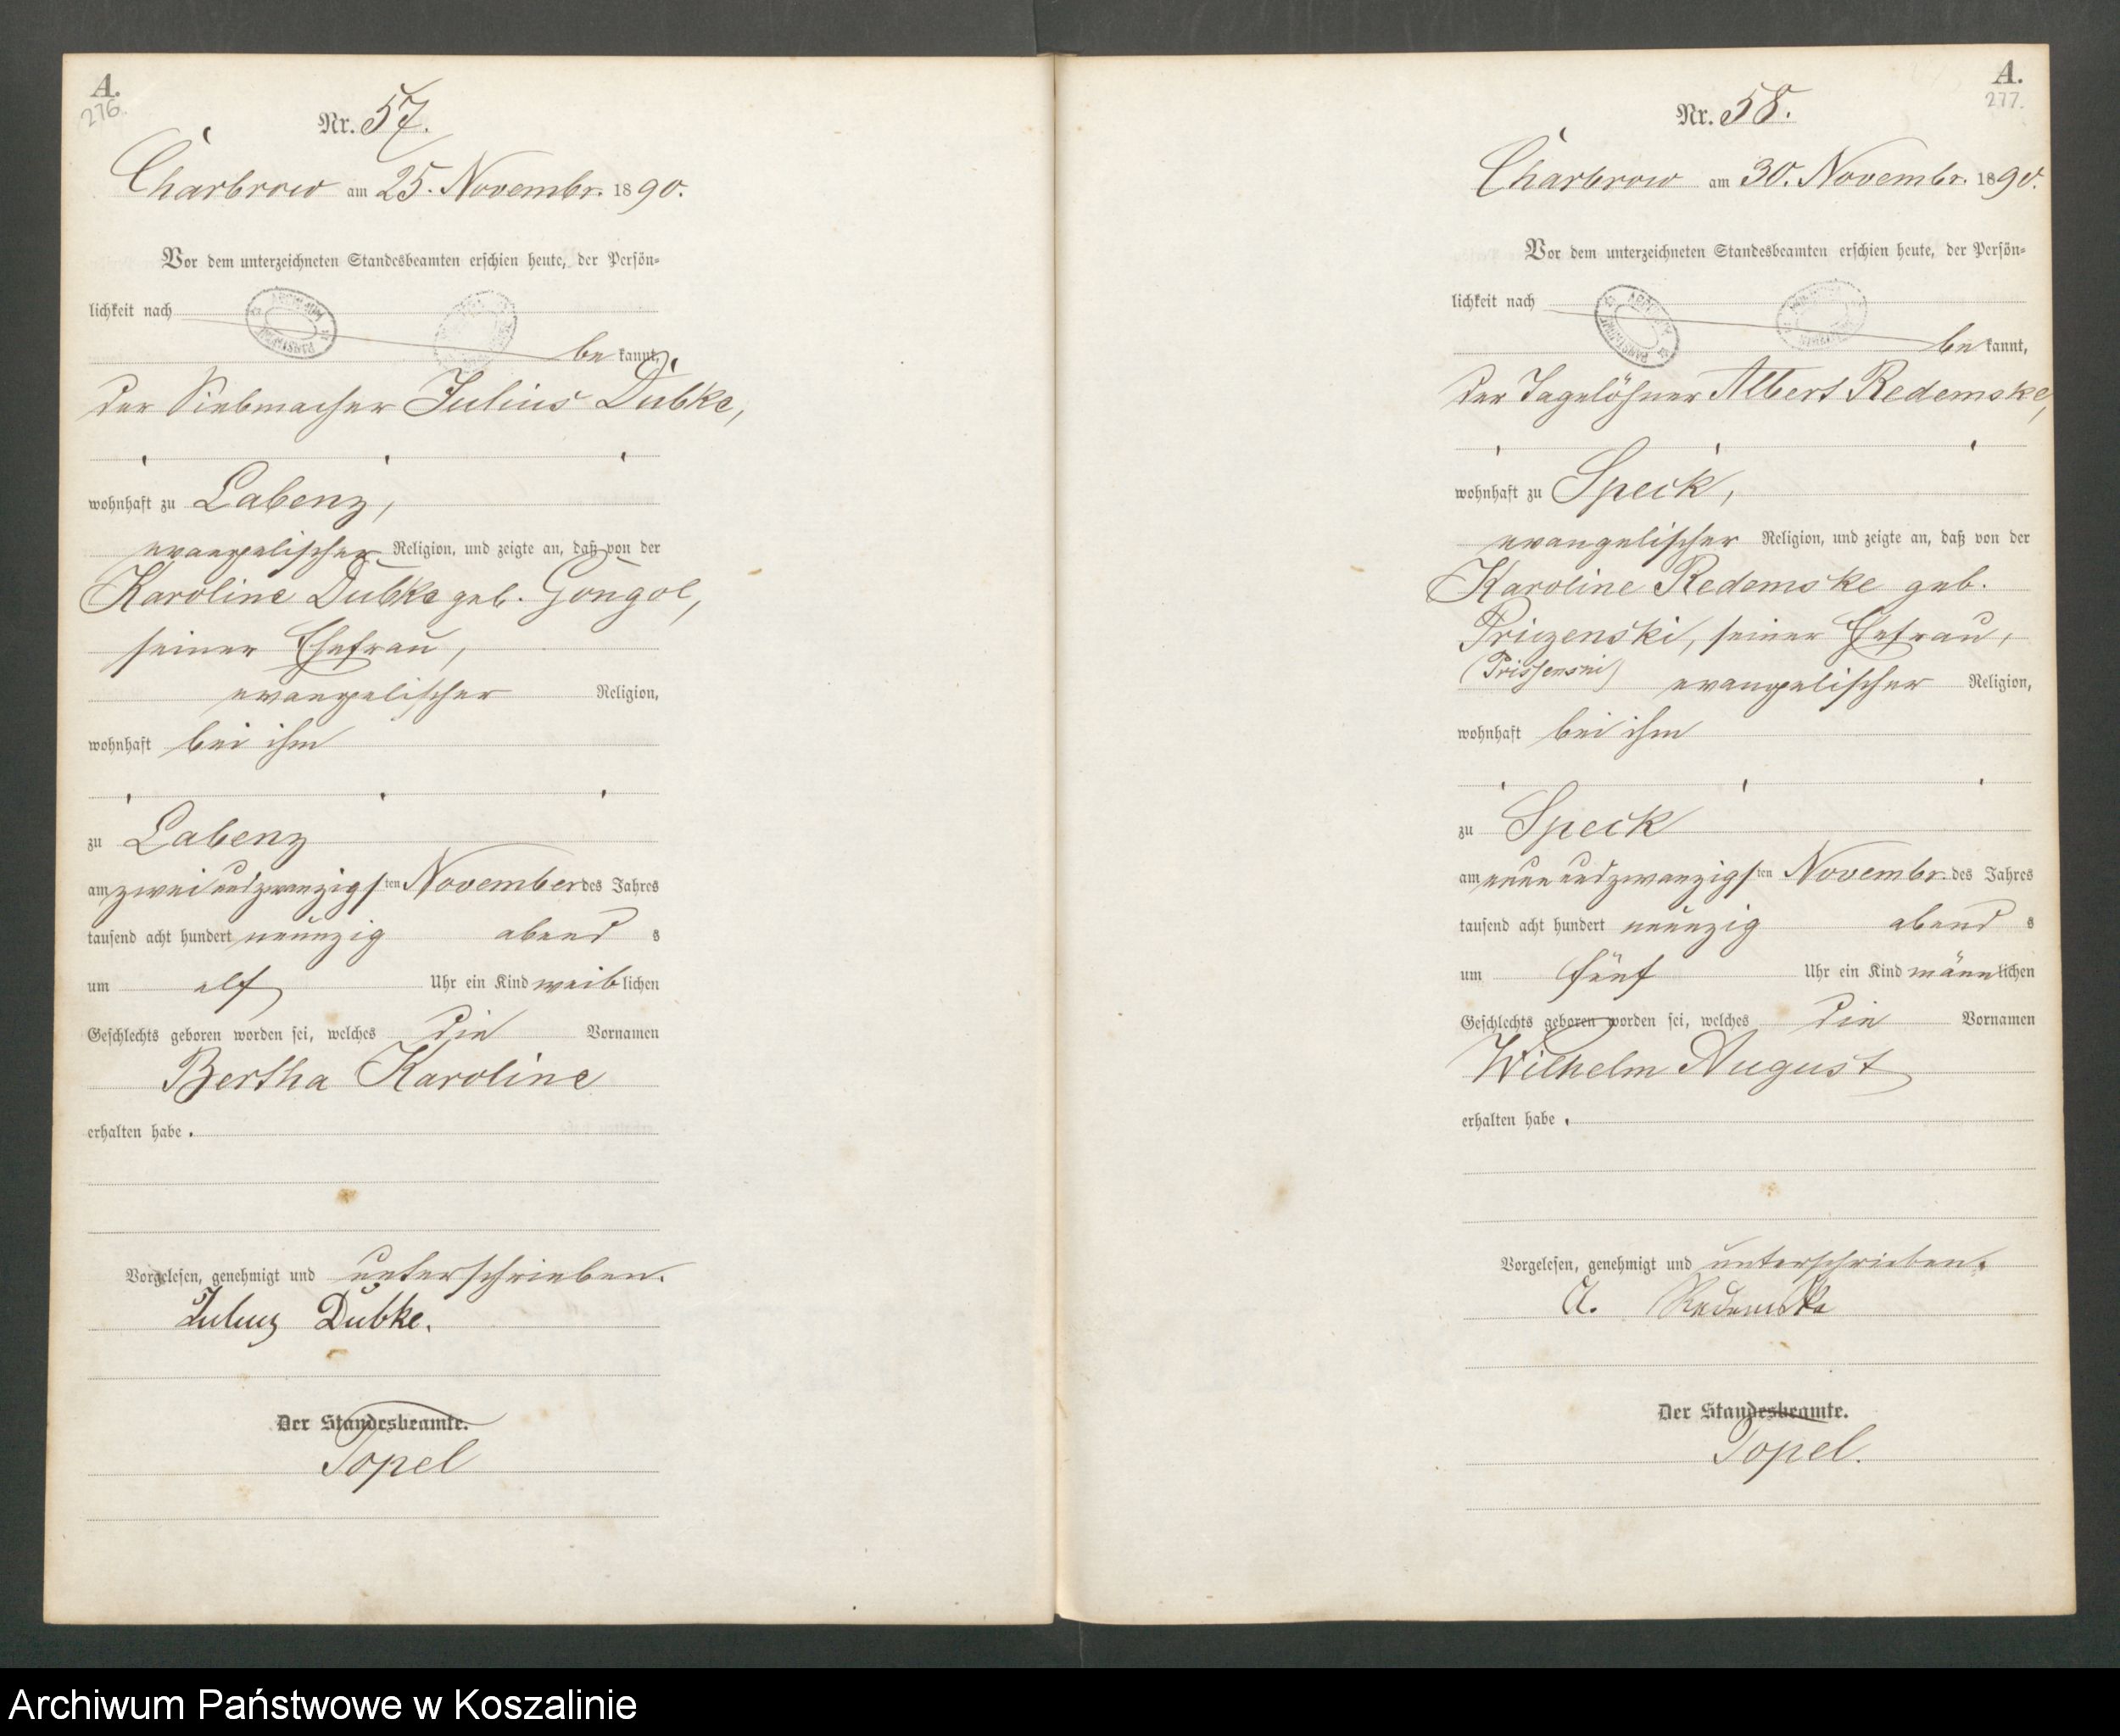 A.
276.
Nr. 57.
Charbrow am 25. Novembr. 1890.
Vor dem unterzeichneten Standesbeamten erschien heute, der Persön-
lichkeit nach
be kannt,
der Siebmacher Julius Dubke,
wohnhaft zu Labenz,
evangelischer Religion, und zeigte an, daß von der
Karoline Dubke geb. Gongol,
seiner Ehefrau,
evangelischer Religion,
wohnhaft bei ihm
zu Labenz
am zwei und zwanzigsten November des Jahres
tausend acht hundert neunzig abend s
um elf Uhr ein Kind weiblichen
Geschlechts geboren worden sei, welches die Vornamen
Bertha Karoline
erhalten habe.
Vorgelesen, genehmigt und unterschrieben.
Julius Dubke.
Der Standesbeamte.
Topel
A.
277.
Nr. 58.
Charbrow am 30. Novembr. 1890.
Vor dem unterzeichneten Standesbeamten erschien heute, der Persön-
lichkeit nach
be kannt,
der Tagelöhner Albert Redemske,
wohnhaft zu Speck,
evangelischer Religion, und zeigte an, daß von der
Karoline Redemske geb.
Priezenski, seiner Ehefrau,
evangelischer Religion,
wohnhaft bei ihm
zu Speck
am neun und zwanzigsten Novembr. des Jahres
tausend acht hundert neunzig abend s
um fünf Uhr ein Kind männlichen
Geschlechts geboren worden sei, welches die Vornamen
Wilhelm August
erhalten habe.
Vorgelesen, genehmigt und unterschrieben.
A. Redemske
Der Standesbeamte.
Topel.
Archiwum Państwowe w Koszalinie